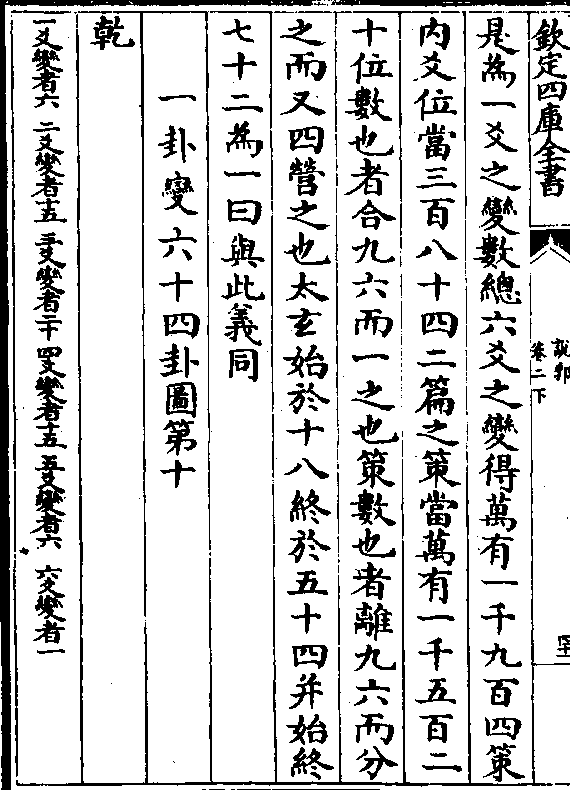 欽定四庫全書
說郛
卷二下
是為一爻之變數總六爻之變得萬有一千九百四策
内爻位當三百八十四二篇之策當萬有一千五百二
十位數也者合九六而一之也策數也者離九六而分
之而又四營之也太玄始於十八終於五十四并始終
七十二為一日與此義同
一卦變六十四卦圖第十
乾
一爻變者六 二爻變者十五 三爻變者二十 四爻變者十五 五爻變者六 六爻變者一